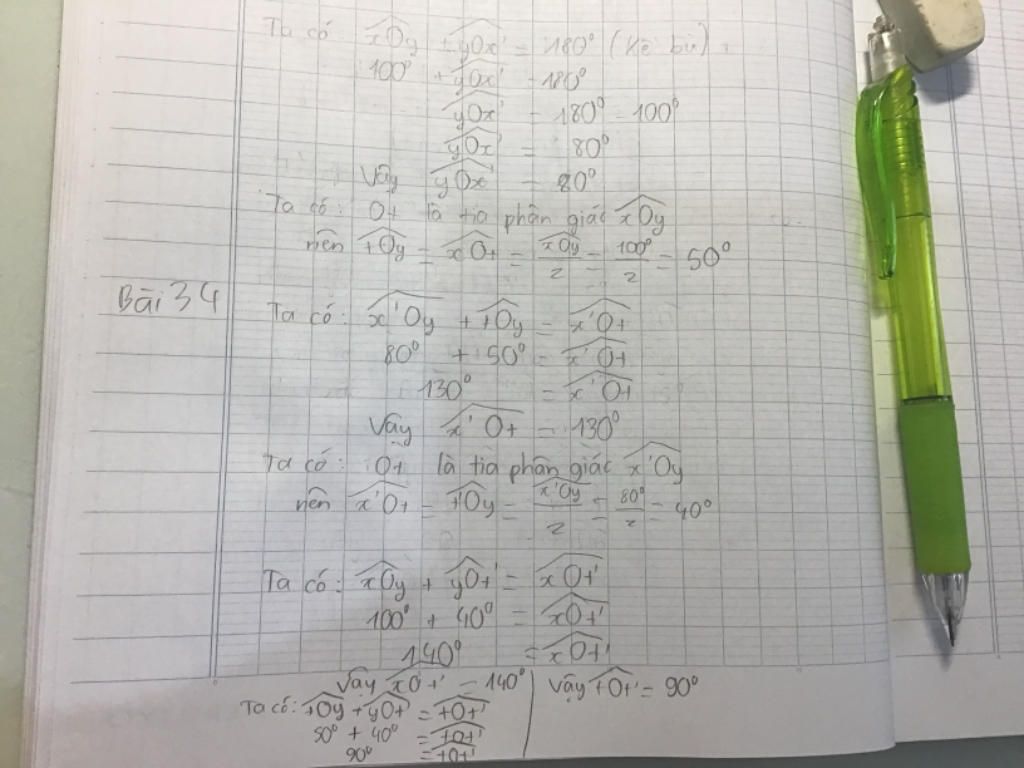 Ta có xOy + yOx' = 180° (kề bù)
100° + yOx' = 180°
yOx' = 180° - 100°
yOx' = 80°
Vậy yOx' = 80°
Ta có: Ot là tia phân giác xOy
nên tOy = xOt = xOy/2 = 100°/2 = 50°
Bài 34
Ta có: x'Oy + tOy = x'Ot
80° + 50° = x'Ot
130° = x'Ot
Vậy x'Ot = 130°
Ta có: Ot là tia phân giác x'Oy
nên x'Ot = tOy = x'Oy/2 = 80°/2 = 40°
Ta có: xOy + yOt' = xOt'
100° + 40° = xOt'
140° = xOt'
Vậy xOt' = 140°
Ta có: tOy + yOt = tOt'
50° + 40° = tOt'
90° = tOt'
Vậy tOt' = 90°